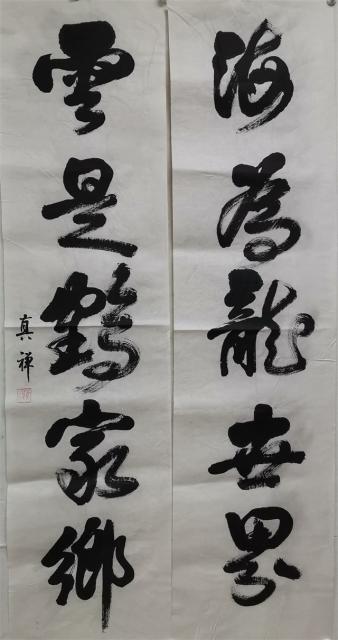 海為龍世界
雲是鶴家鄉
真禪